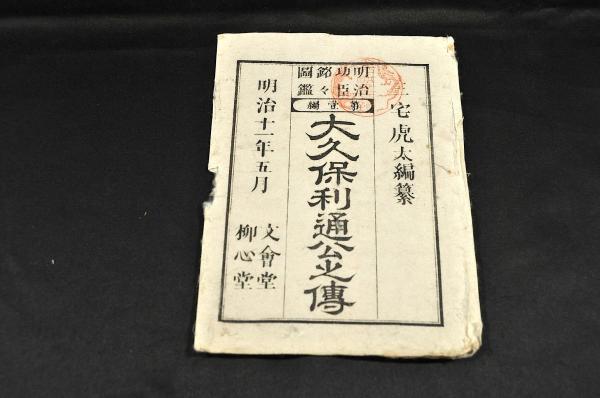 三宅虎太編纂
明治功臣
銘々圖鑑
第壹編
大久保利通公之傳
明治十一年五月
文會堂
柳心堂